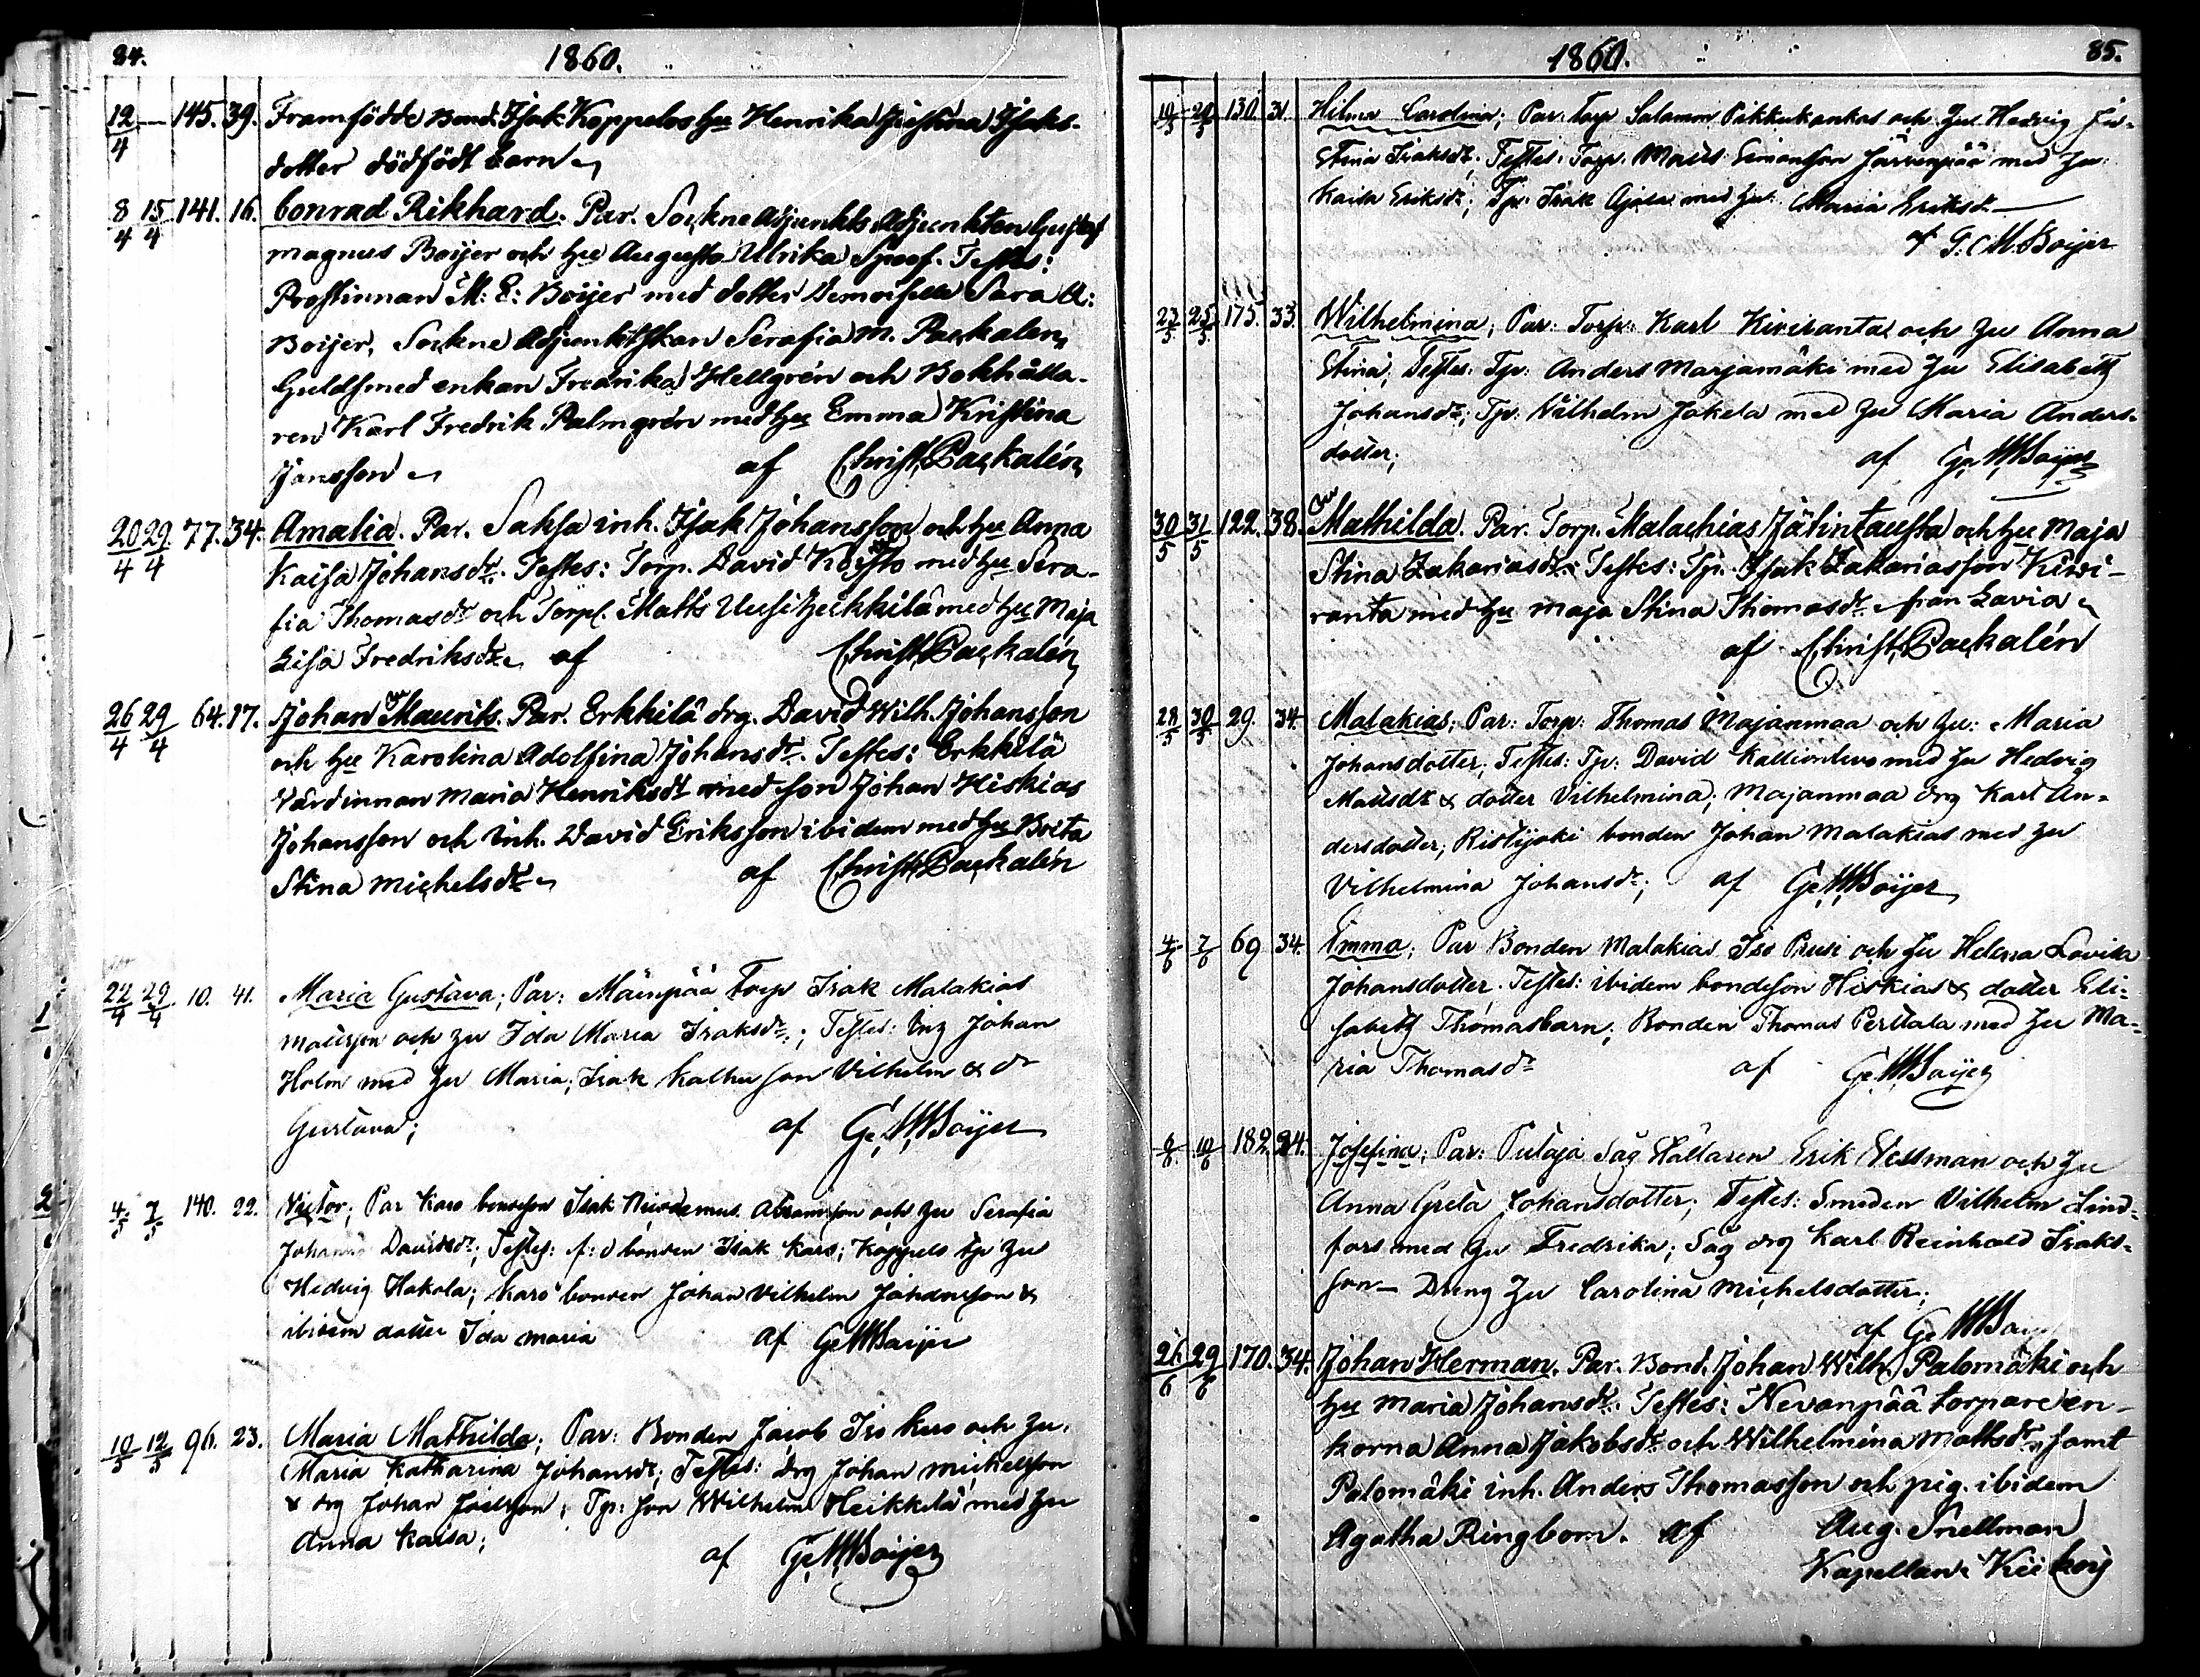 84.
1860.
12/4 — 145. 39. Framfödde Bond. Isak Koppelos hu Henrika Justina Isaks-
dotter dödfödt barn
8/4 15/4 141. 16. Conrad Rikhard. Par. Sockne Adjunkts Adjunkten Gustaf
Magnus Boijer och hu Augusta Ulrika Spoof. Testes:
Prostinnan M: E: Boijer med dotter Demoiselle Sara A:
Boijer, Sockne Adjunktskan Serafia M. Packalen,
Guldsmed enkan Fredrika Hellgrén och Bokhålla-
ren Karl Fredrik Palmgrén med hu Emma Kristina
Jansson af Christ. Packalén
20/4 29/4 77. 34. Amalia. Par. Saksa inh. Isak Johansson och hu Anna
Kaisa Johansdr. Testes: Torp. David Koisto med hu Sera-
fia Thomasdr och Torp. Matts Uusiheikkilä med hu Maja
Lisa Fredriksdr. af Christ. Packalén
26/4 29/4 64. 17. Johan Maurits. Par. Erkkilä drg. David Wilh. Johansson
och hu Karolina Adolfina Johansdr. Testes: Erkkilä
Värdinnan Maria Henriksdr med son Johan Hiskias
Johansson och inh. David Eriksson ibidem med hu Brita
Stina Michelsdr af Christ. Packalén
22/4 29/4 10. 41. Maria Gustava; Par: Mäenpää Torp Isak Malakias
Matsson och hu Ida Maria Isaksdr; Testes: Inh Johan
Holm med hu Maria; Isak Kalhu son Vilhelm & dr
Gustava; af G. M. Boijer
4/5 7/5 140. 22. Victor; Par Karo bondeson Isak Nicodemus Abramsson och hu Serafia
Johanna Davidsdr; Testes: f: d bonden Isak Karo; Koppels tp hu
Hedvig Hakola; Karo bonden Johan Vilhelm Johansson &
ibidem dotter Ida Maria af G. M. Boijer
10/5 12/5 96. 23. Maria Mathilda; Par: Bonden Jacob Iso Karo och hu.
Maria Katharina Johansdr; Testes: drg Johan Michelsson
& drg Johan Joelsson; Tp: son Wilhelm Heikkilä med hu
Anna Kaisa; af G. M. Boijer
1860.
85.
19/5 20/5 130 31 Hilma Carolina; Par. Torp Salomon Pikkukankas och hu. Hedvig Ju-
stina Isaksdr; Testes: Torp. Matts Simonsson Järvenpää med hu
Kaisa Eriksdr; Tp: Isak Ajola med hu: Maria Eriksdr —
af G. M. Boijer
23/5 25/5 175. 33. Wilhelmina; Par: Torp: Karl Kiviranta och hu Anna
Stina; Testes: Tp: Anders Marjamäki med hu Elisabeth
Johansdr; Tp: Vilhelm Jakela med hu Maria Anders-
dotter; af G. M. Boijer
30/5 31/5 122. 38. Mathilda. Par. Torp. Malachias Jätintausta och hu Maja
Stina Zakariasdr. Testes: Tp. Isak Zakariasson Kiwi-
ranta med hu Maja Stina Thomasdr från Lavia
af Christ. Packalén
28/5 30/5 29. 34. Malakias; Par: Torp: Thomas Majanmaa och hu: Maria
Johansdotter; Testes: Tp: David Kallionlevo med hu Hedvig
Mattsdr & dotter Vilhelmina; Majanmaa drg Karl An-
dersdotter; Ristijoki bonden Johan Malakias med hu
Vilhelmina Johansdr; af G. M. Boijer
4/6 7/6 69 34. Emma; Par Bonden Malakias Iso Prusi och hu Helena Lovisa
Johansdotter. Testes: ibidem bondeson Hiskias & dotter Eli-
sabeth Thomasbarn; Bonden Thomas Perttala med hu Ma-
ria Thomasdr af G. M. Boijer
8/6 10/6 182. 24. Josefina; Par: Putaja Såg Ställaren Erik Vessman och hu
Anna Greta Johansdotter; Testes: Smeden Vilhelm Lind-
fors med hu Fredrika; Såg drg Karl Reinhold Isaks-
son — Dreng hu Carolina Michelsdotter;
af G. M. Boij
26/6 29/6 170. 34. Johan Herman. Par. Bond. Johan Wilh. Palomäki och
hu Maria Johansdr. Testes: Nevanpää torpare en-
korna Anna Jakobsdr och Wilhelmina Mattsdr, samt
Palomäki inh. Anders Thomasson och pig. ibidem
Agatha Ringbom. af Aug. Snellman
Kapellan i Kiikois